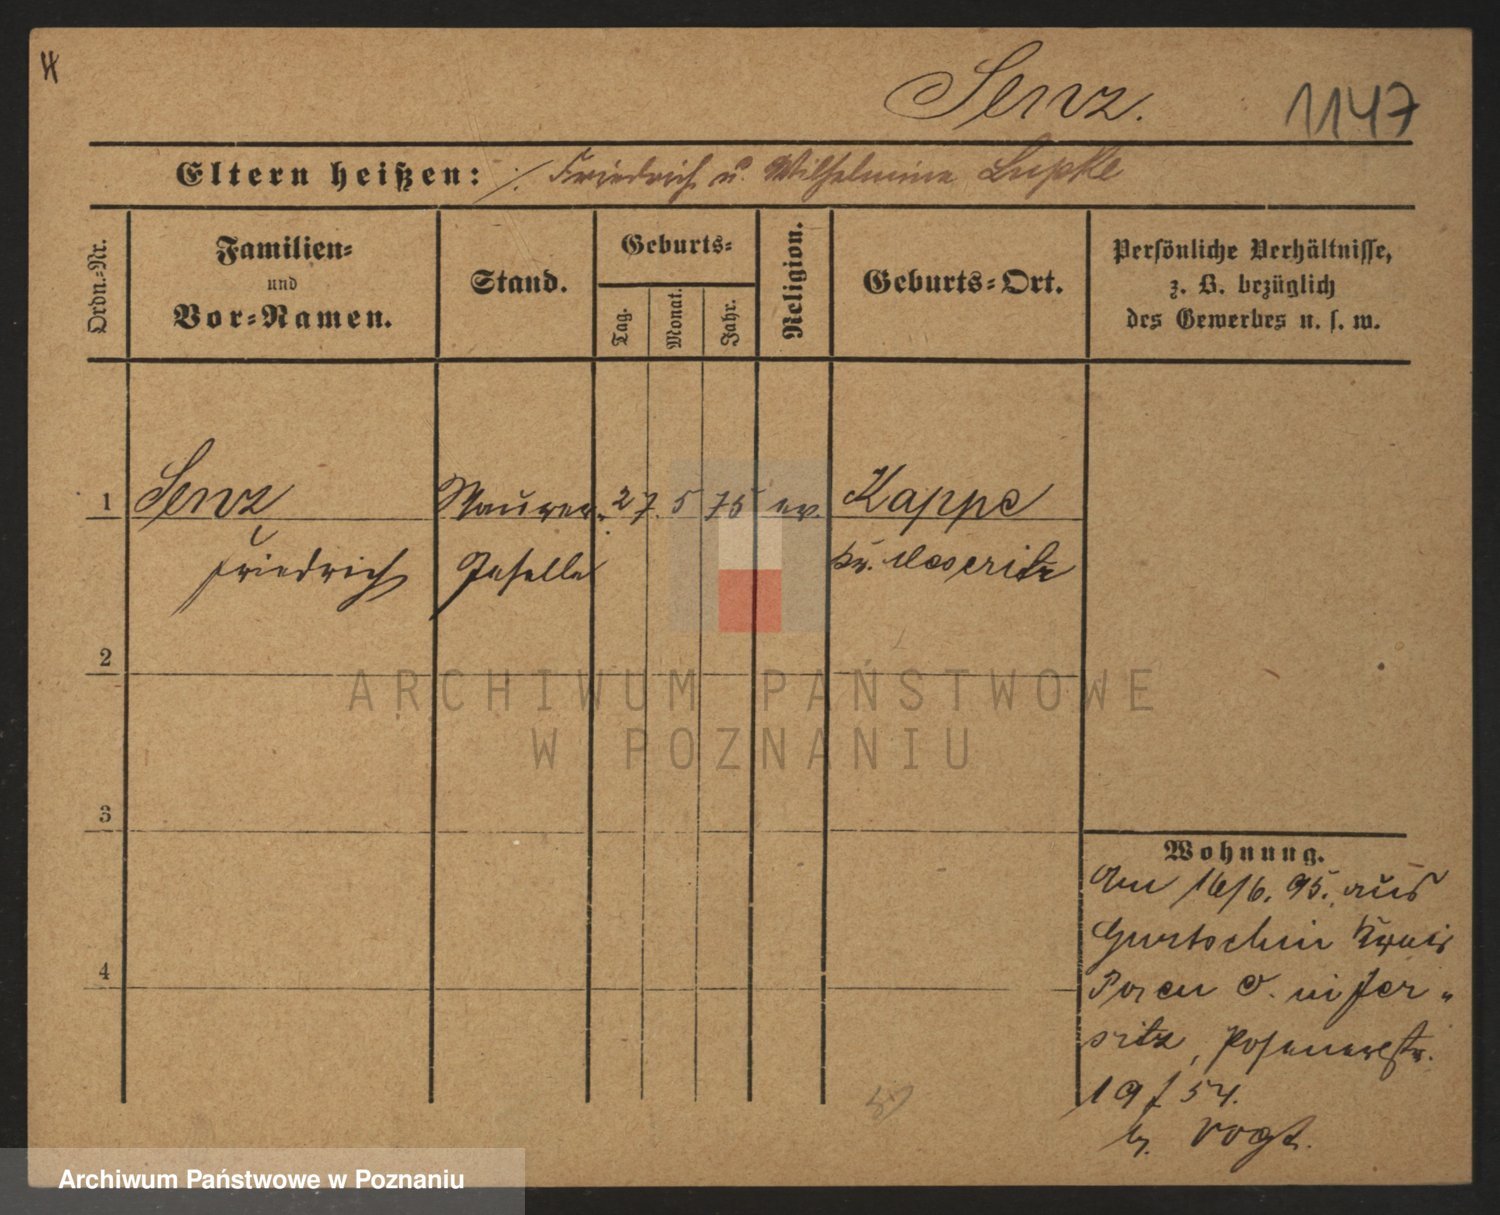 Senz.
1147
Eltern heißen: ./. Friedrich u. Wilhelmine Lupke
Ordn.-Nr.
Familien-
und
Vor-Namen.
Stand.
Geburts-
Tag.
Monat.
Jahr.
Religion.
Geburts-Ort.
Persönliche Verhältnisse,
z. B. bezüglich
des Gewerbes u. s. w.
1 Senz Maurer- 27. 5 75 ev. Kappe
Friedrich Geselle Kr. Meseritz
2
ARCHIWUM PAŃSTWOWE
W POZNANIU
3
4
Wohnung.
Am 16/6. 95. aus
Gurtschin Kreis
Posen O. in Jer-
sitz, Posenerstr.
19 / 54.
b. Vogt.
Archiwum Państwowe w Poznaniu